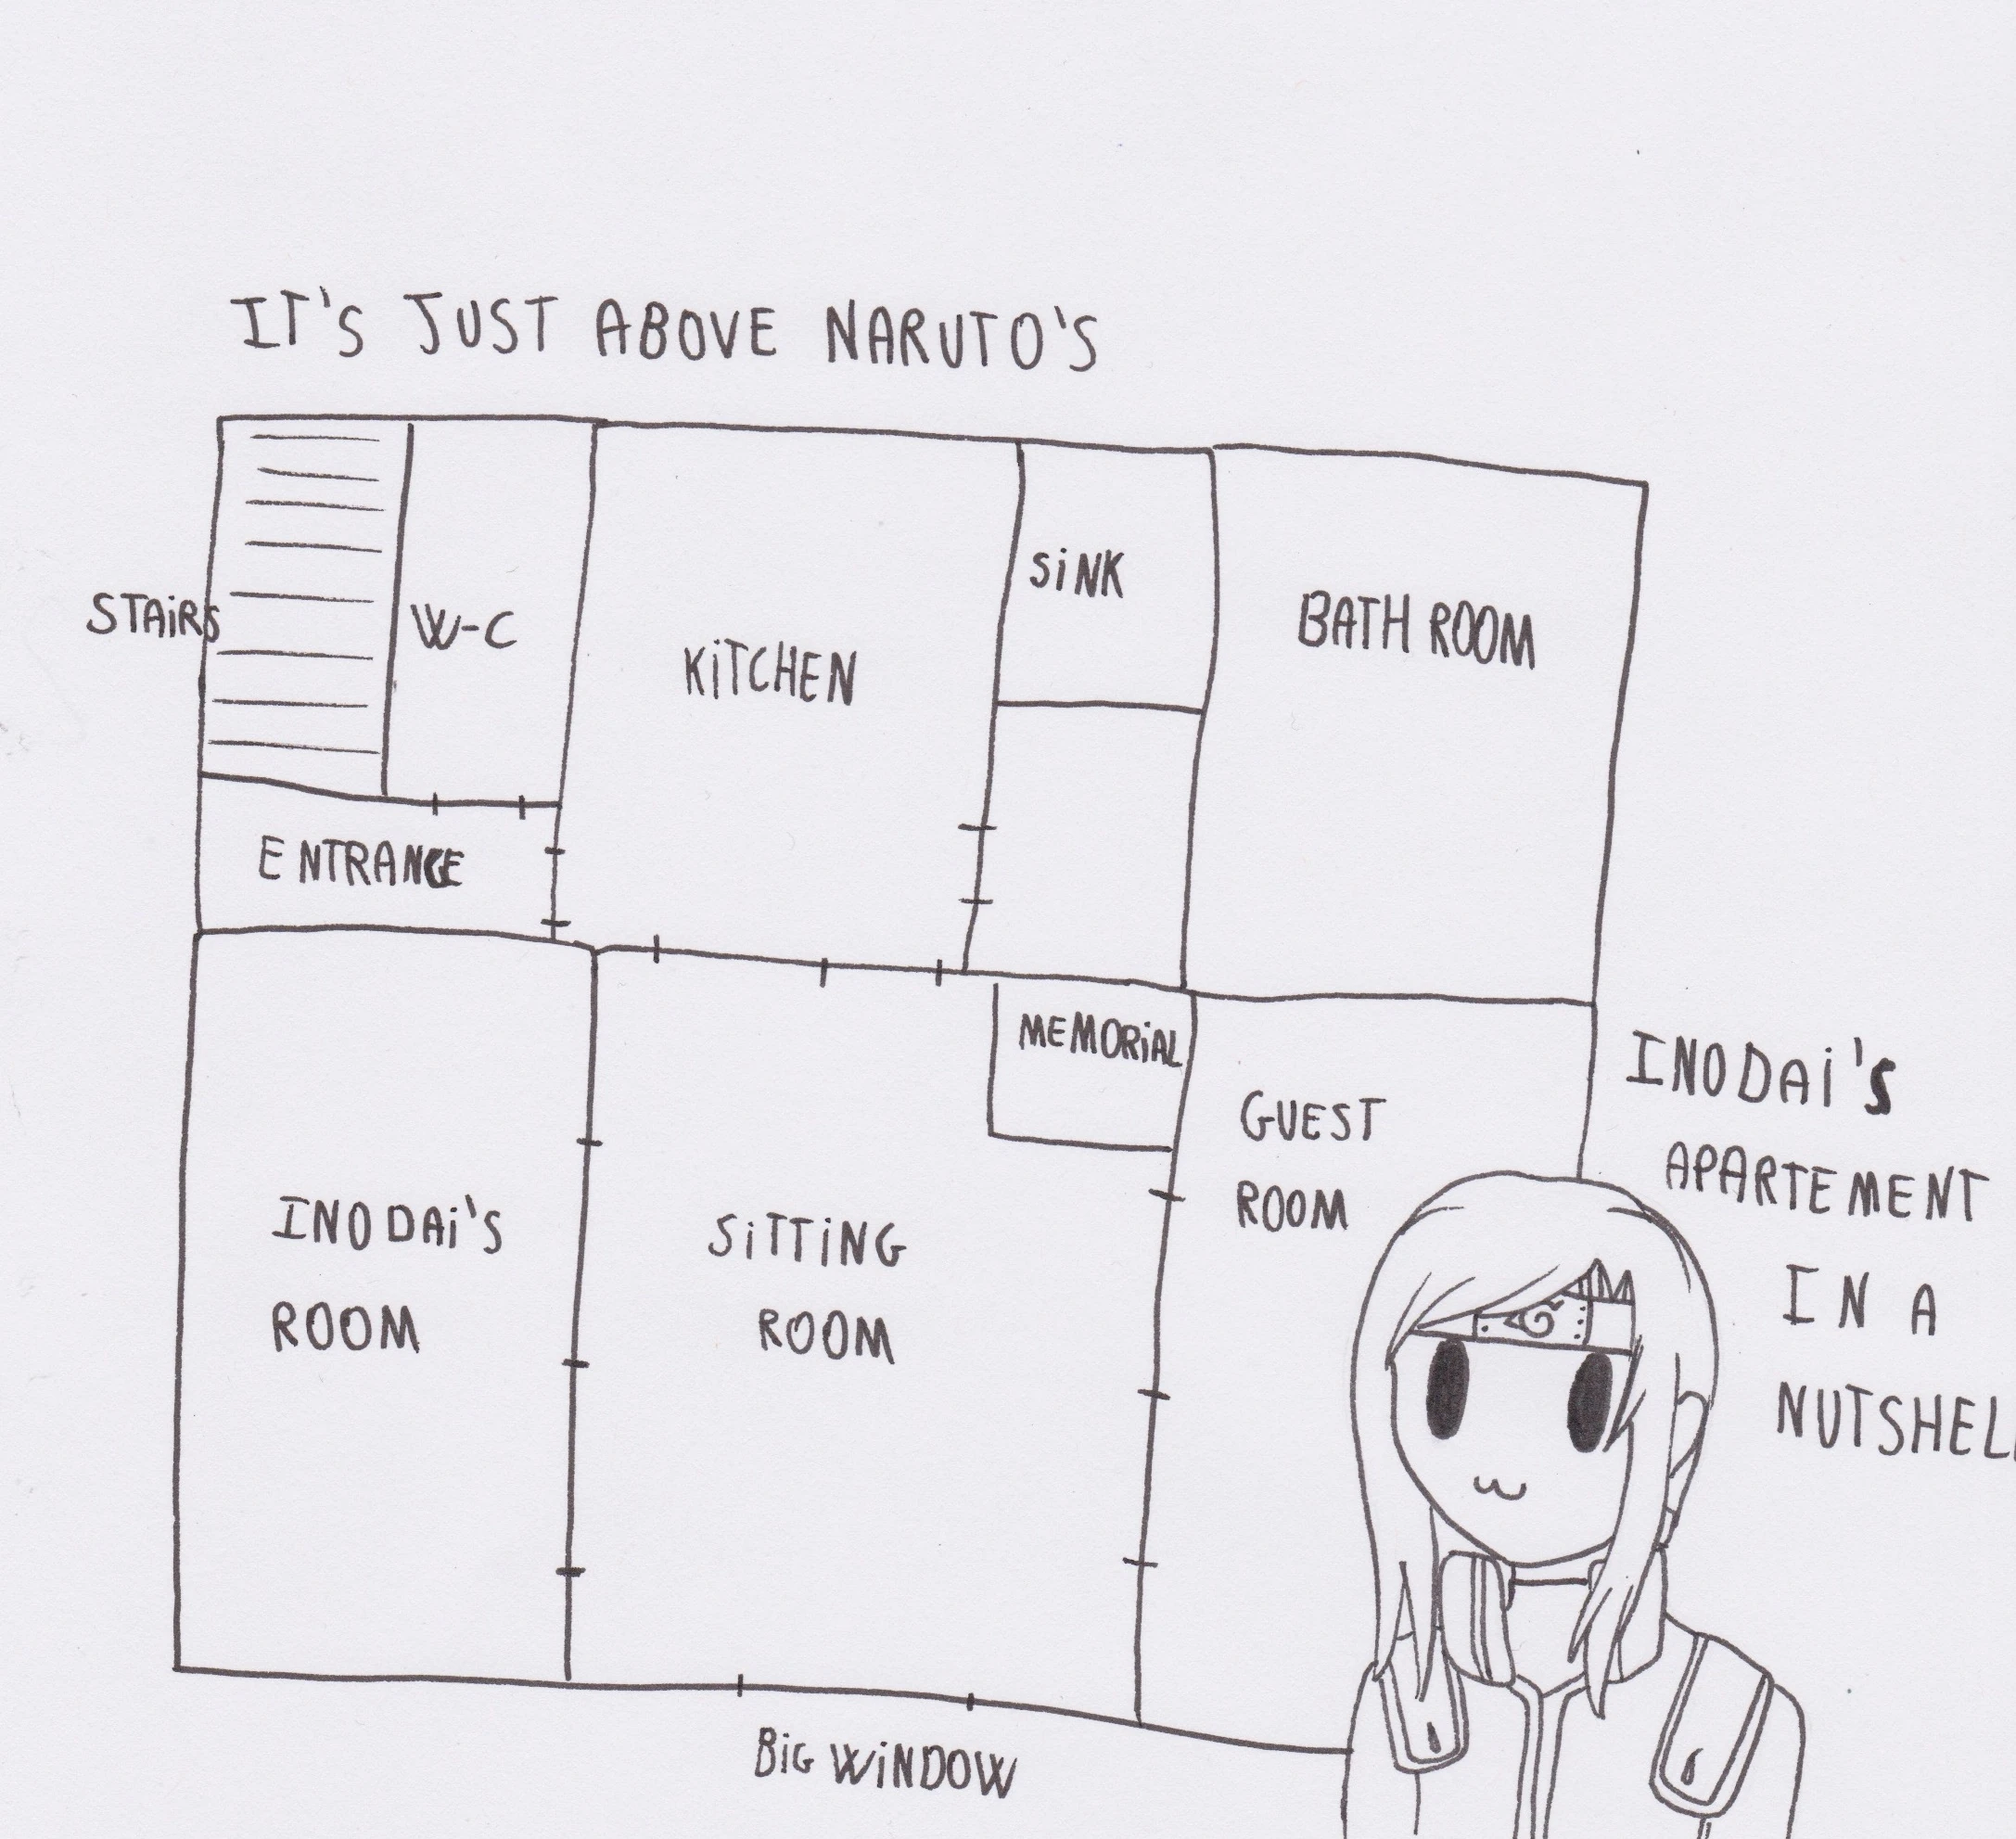 IT'S JUST ABOVE NARUTO'S
STAiRS
W-C
KiTCHEN
SiNK
BATH ROOM
ENTRANCE
MEMORiAL
INODAi'S
ROOM
SiTTiNG
ROOM
GUEST
ROOM
INODAi'S
APARTEMENT
IN A
NUTSHEL
BiG WiNDOW